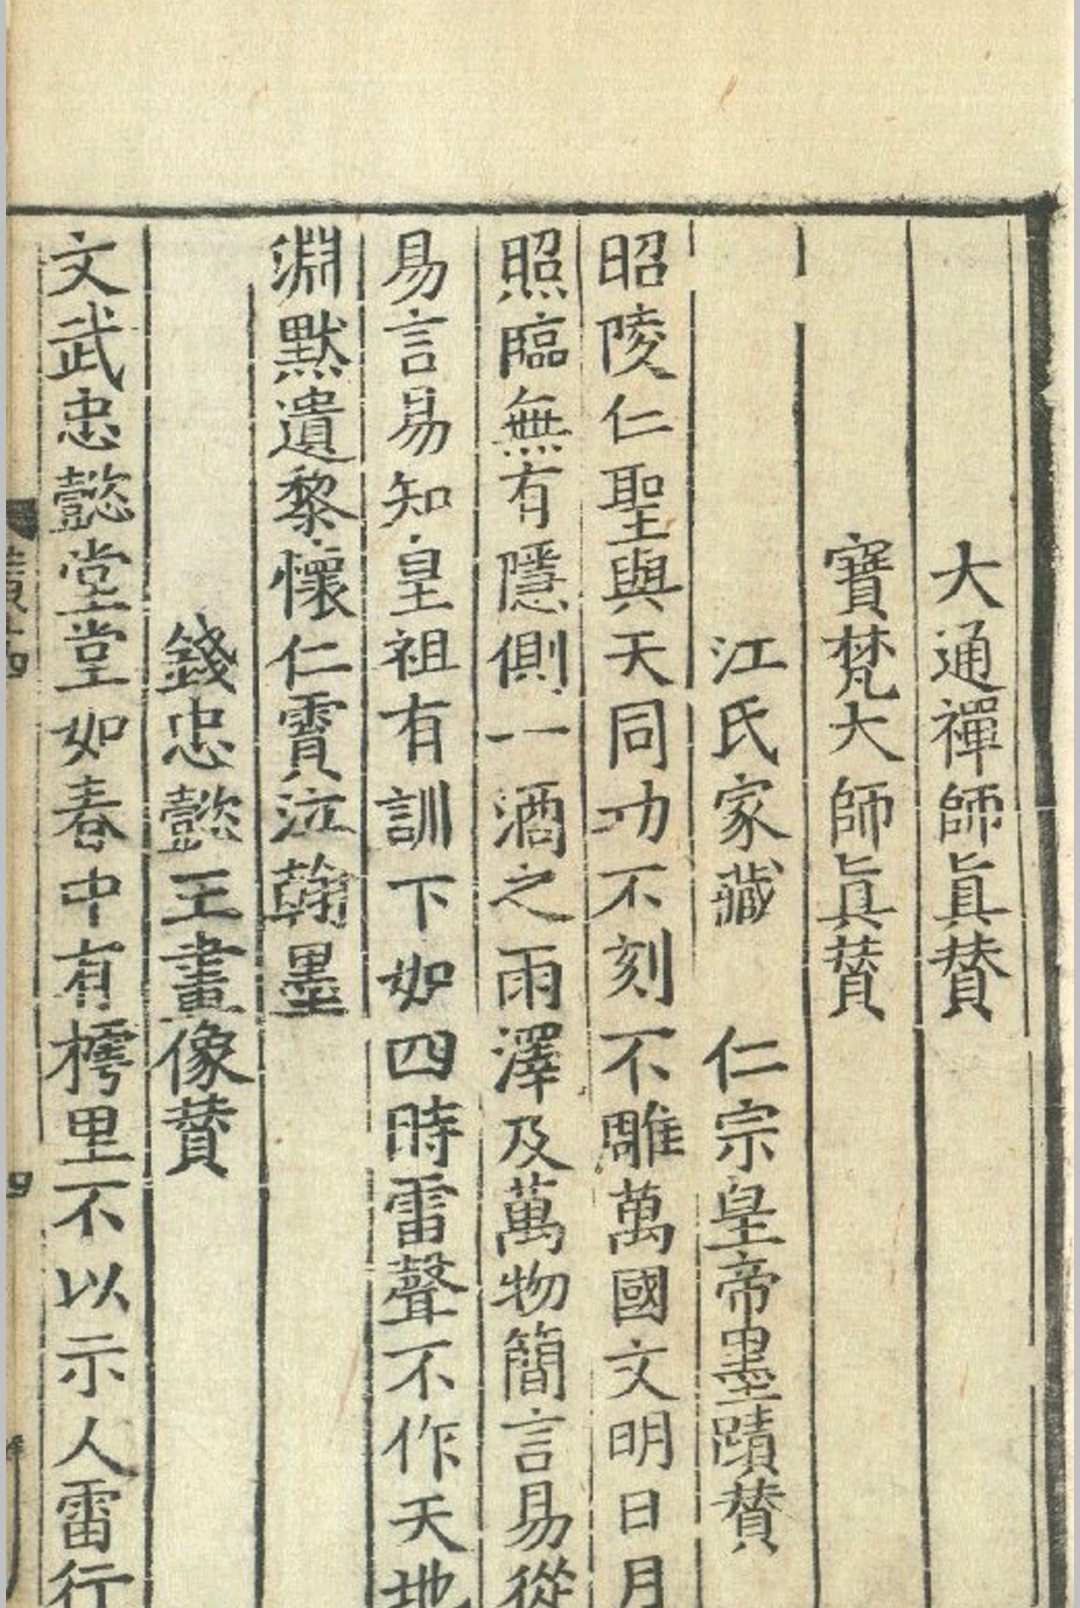 大通禪師眞賛
寶梵大師眞賛
江氏家藏　仁宗皇帝墨蹟賛
昭陵仁聖與天同功不刻不雕萬國文明日月
照臨無有隱側一洒之雨澤及萬物簡言易從
易言易知皇祖有訓下如四時雷聲不作天地
淵默遺黎懷仁霣泣翰墨
錢忠懿王畫像賛
文武忠懿堂堂如春中有樗里不以示人雷行